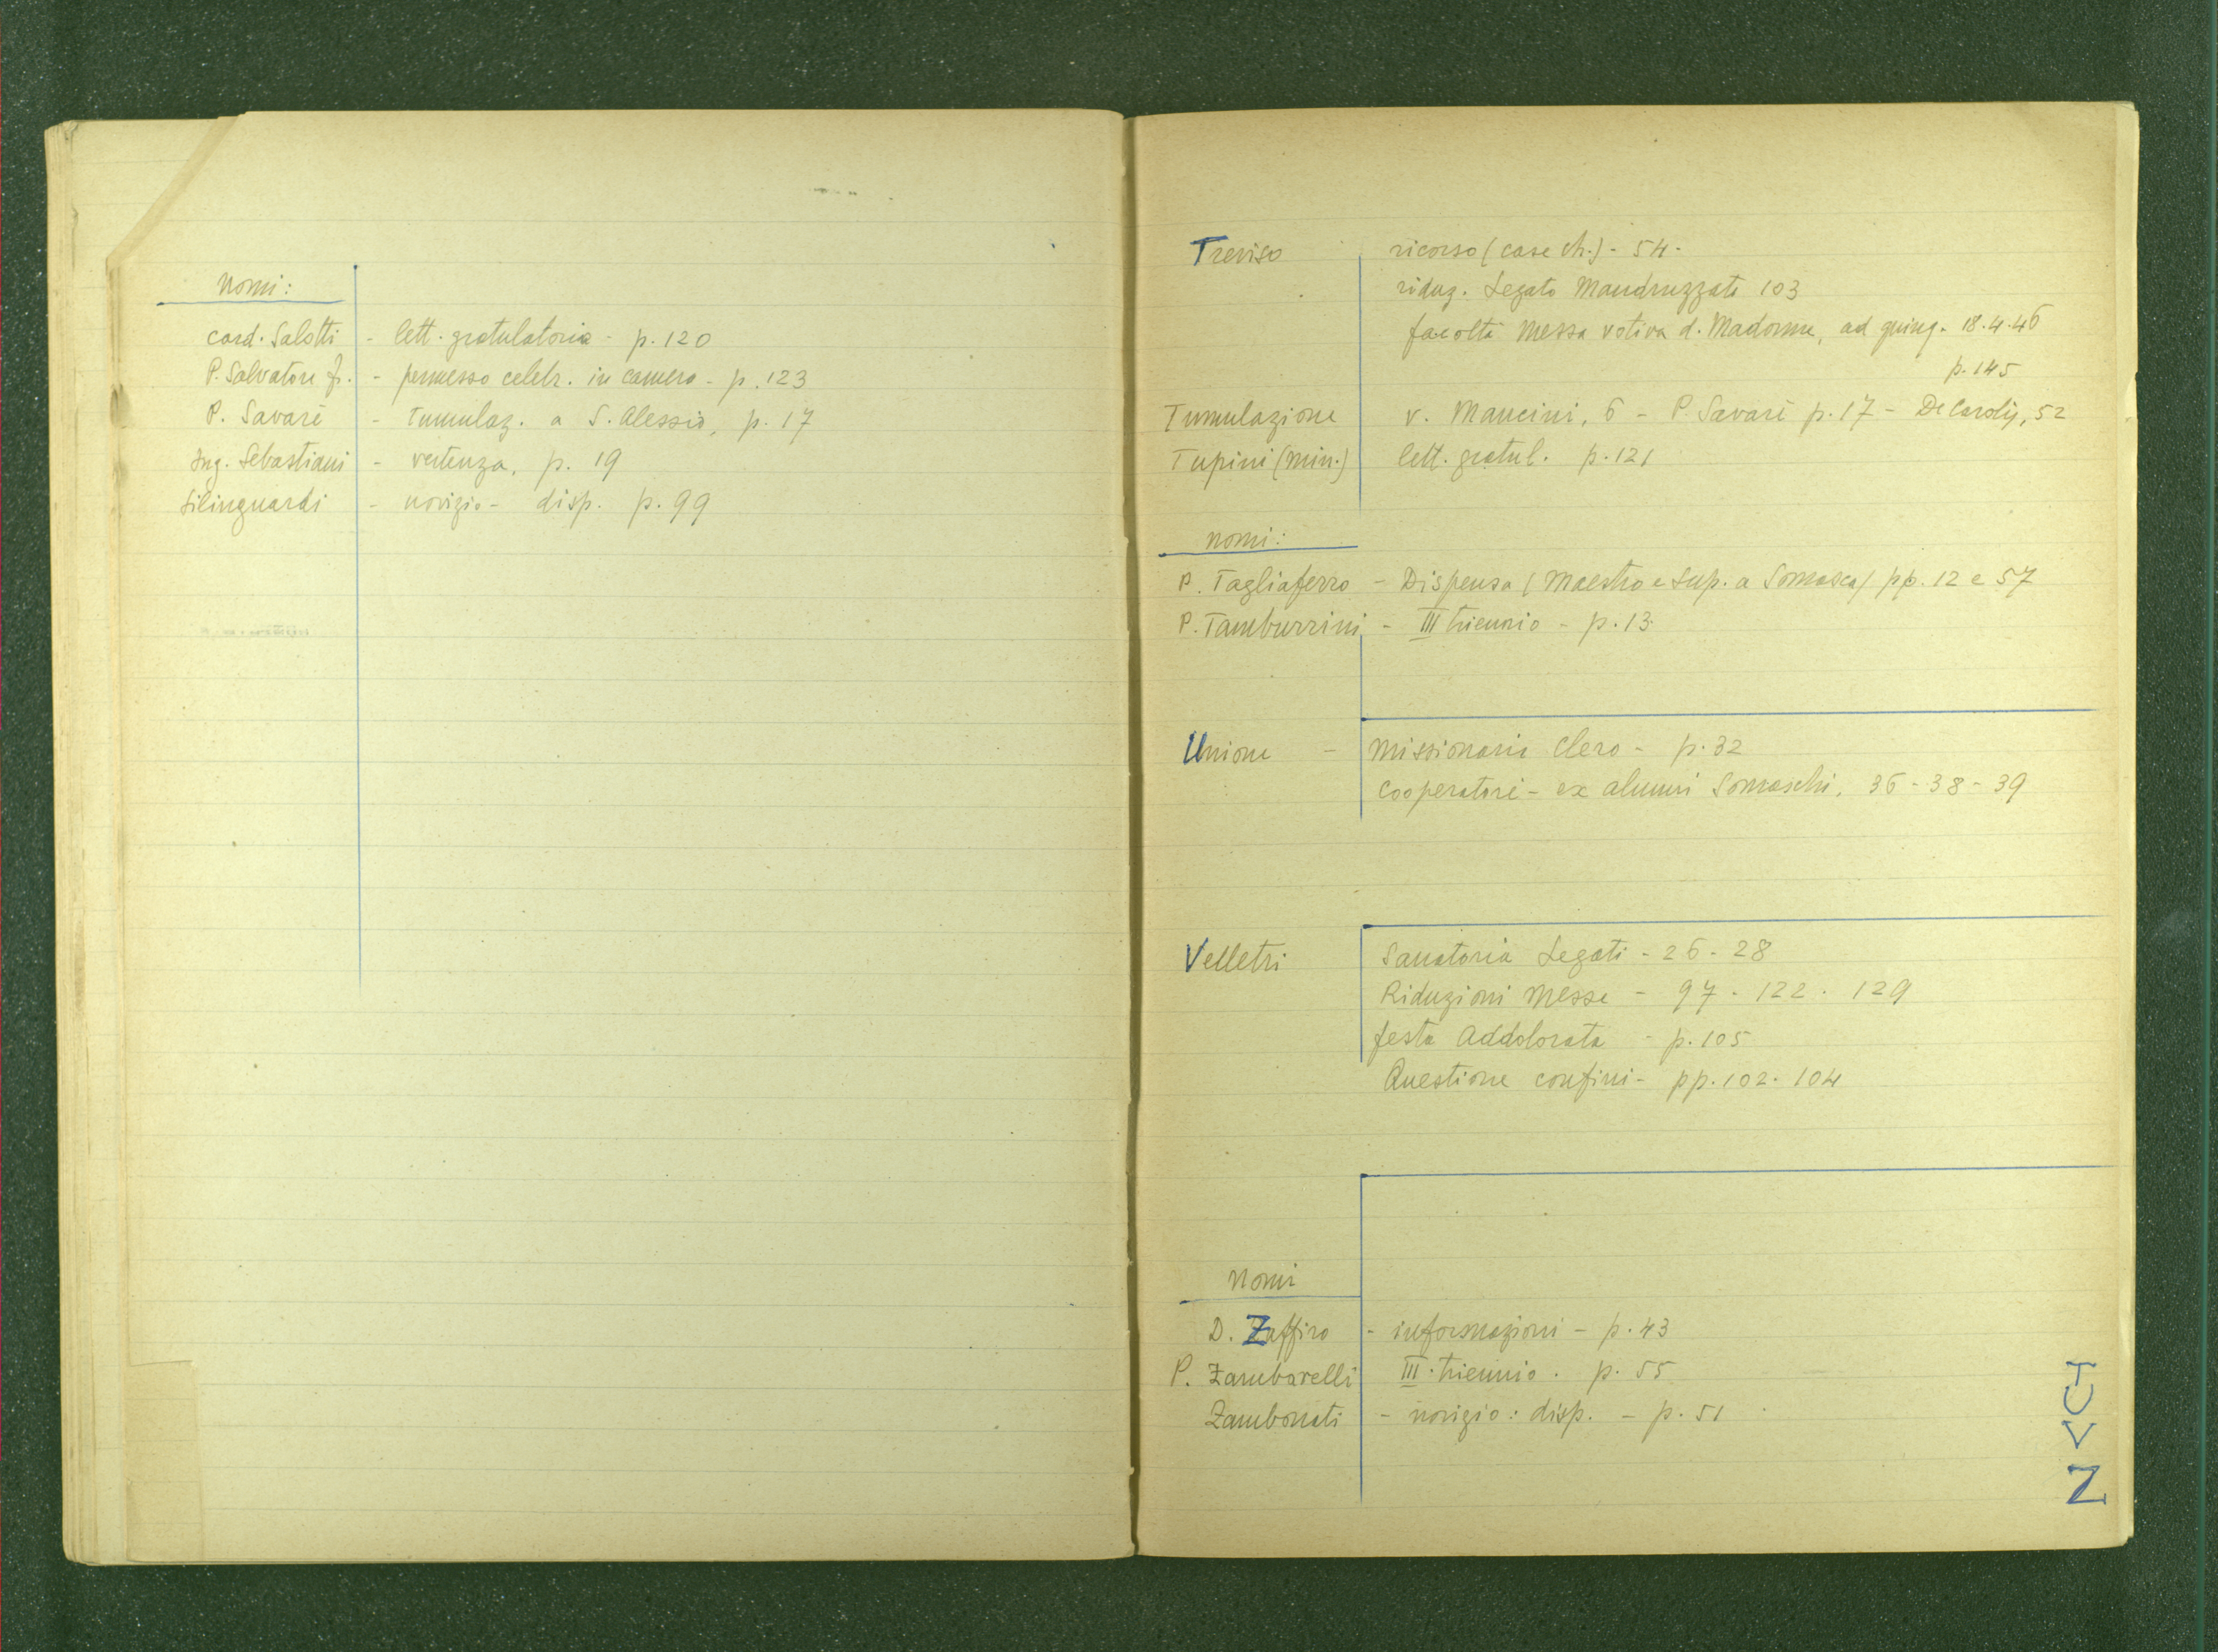 Nomi:
Card. Salotti - lett. gratulatoria - p. 120
P. Salvatore f. - permesso celebr. in camera - p. 123
P. Savarè - Tumulaz. a S. Alessio, p. 17
Ing. Sebastiani - vertenza, p. 19
Silinguardi - novizio - disp. p. 99
Treviso ricorso (case ch.) - 54 -
riduz. Legato Mandruzzato 103
facoltà Messa votiva d. Madonna, ad quinq. 18.4.46
p. 145
Tumulazione v. Mancini, 6 - P. Savarè p. 17 - De Carolis, 52
Tupini (min.) lett. gratul. p. 121
nomi:
P. Tagliaferro - Dispensa (Maestro e Sup. a Somasca) pp. 12 e 57
P. Tamburrini - III triennio - p. 13
Unione - Missionaria Clero - p. 32
Cooperatori - ex alunni Somaschi, 36 - 38 - 39
Velletri Sanatoria Legati - 26 - 28
Riduzioni Messe - 97 - 122 - 129
festa Addolorata - p. 105
Questione confini - pp. 102 - 104
Nomi
D. Zaffiro - informazioni - p. 43
P. Zambarelli III triennio . p. 55
Zambonati - novizio : disp. - p. 51
T U V Z